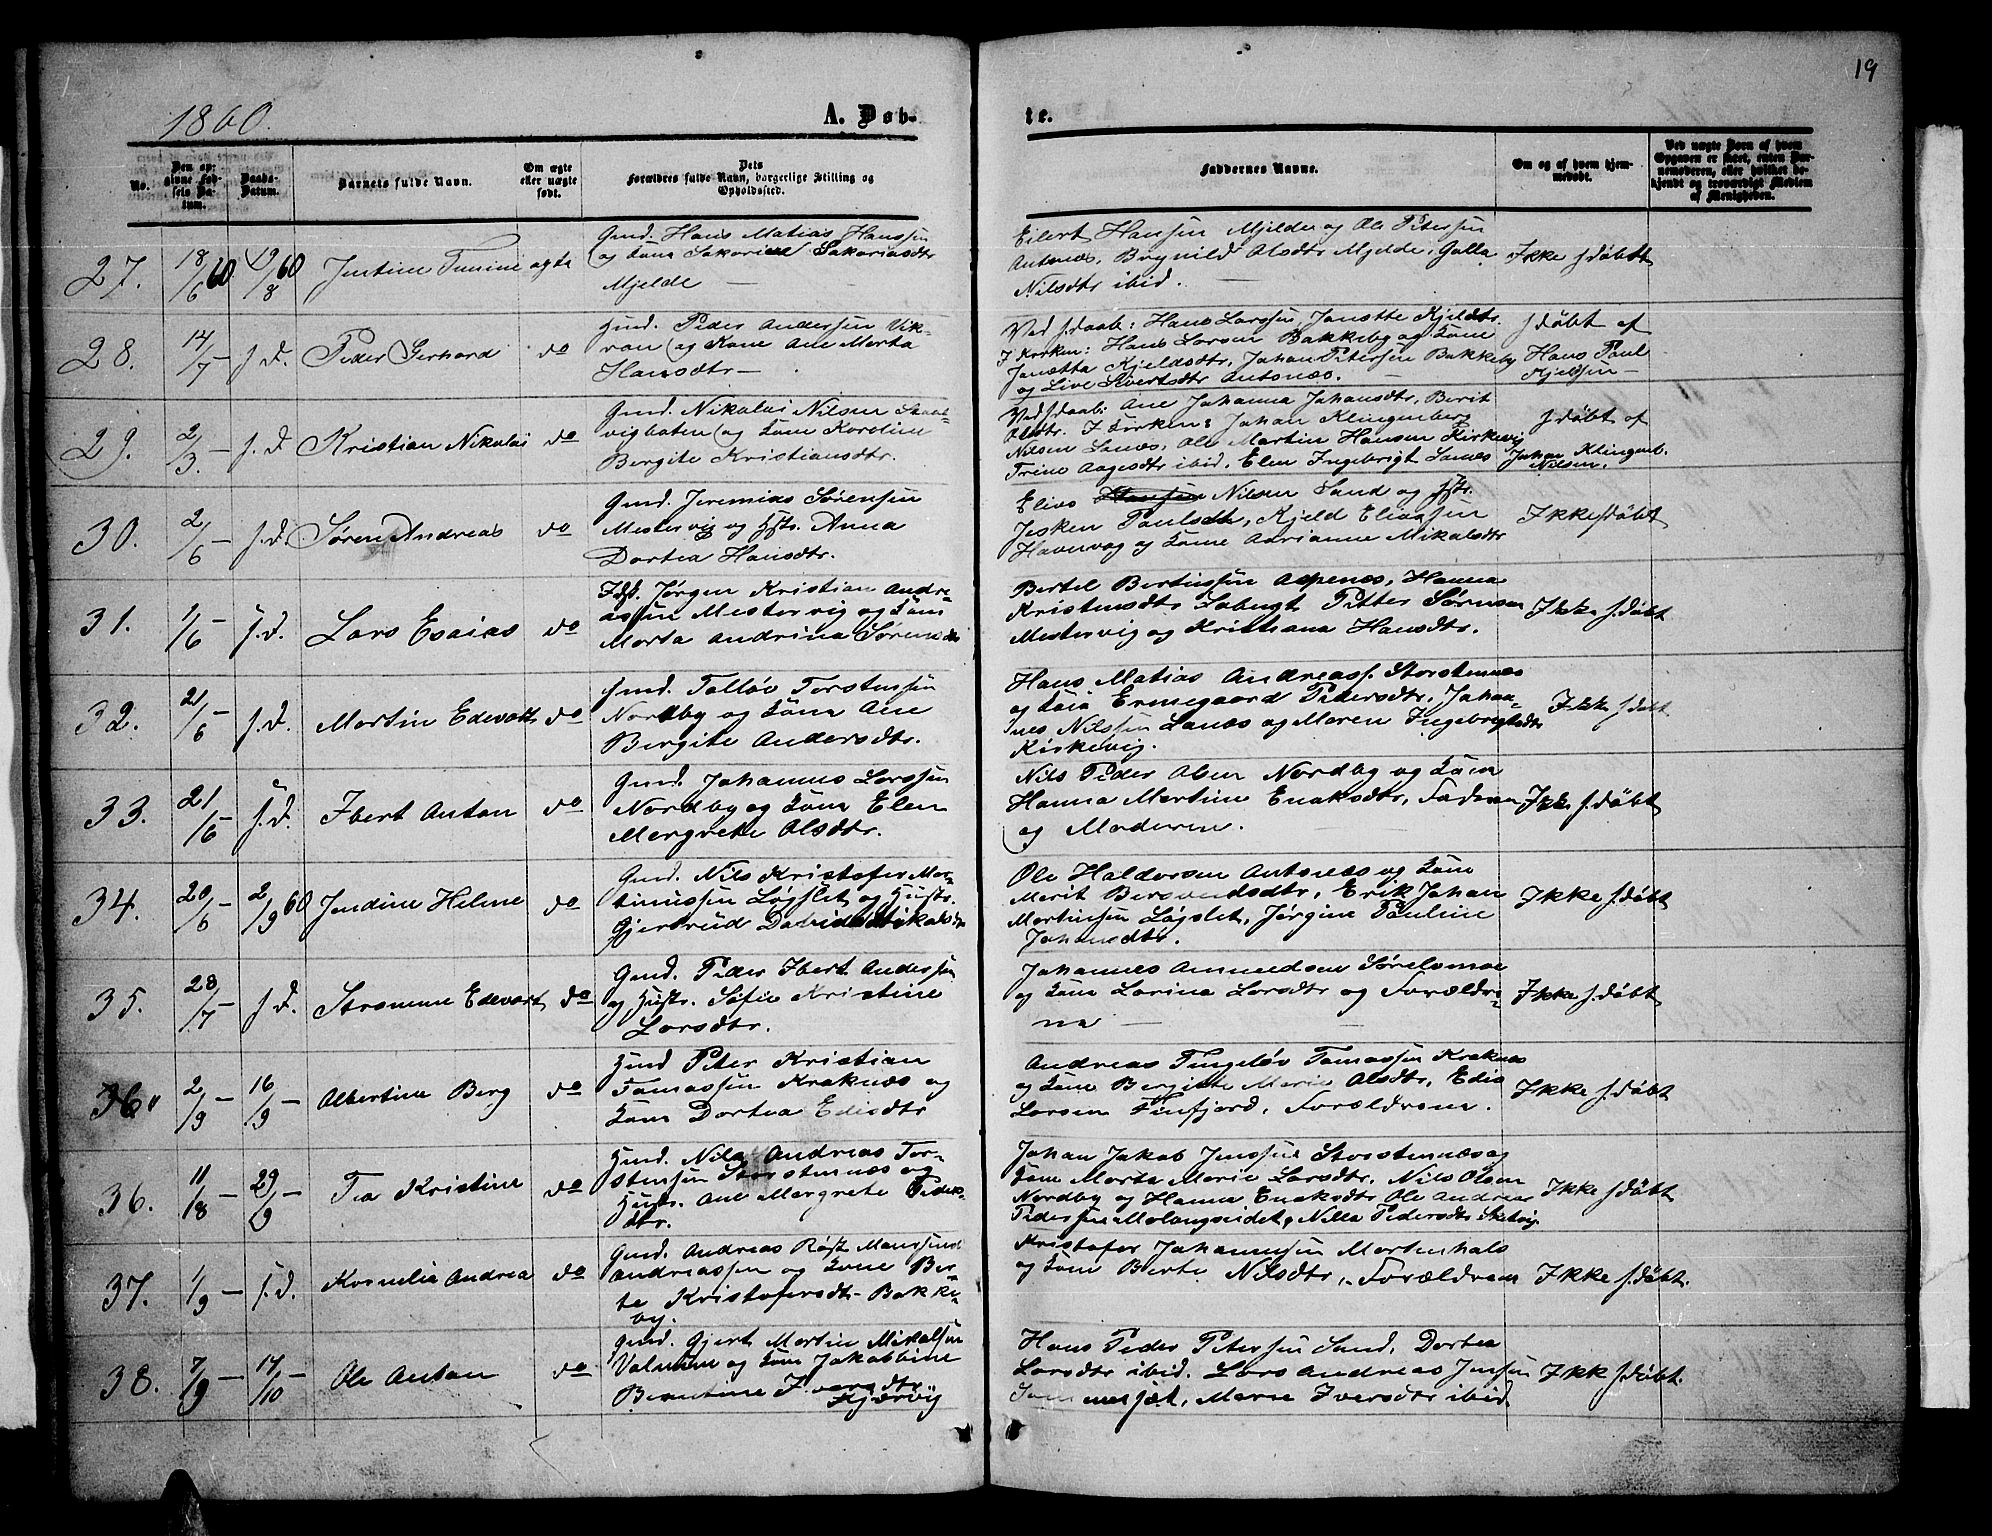 19
1860.
A. Døb-
te.
No.
Den op-
givne Fød-
sels Da-
tum.
Daabs-
Datum.
Barnets fulde Navn.
Om ægte
eller uægte
født.
Dets
Forældres fulde Navn, borgerlige Stilling og
Opholdssted.
Faddernes Navne.
Om og af hvem hjem-
medøbt.
Ved uægte Børn af hvem
Opgaven er skeet, enten Bar-
nemoderen, eller hvilket be-
kjendt og troværdigt Medlem
af Menigheden.
27. 18/6 60 19/8 60 Justine ægte
Gmd. Hans Matias Hanssen
og Kone Sakarine Sakariasdtr
Mjelde —
Eilert Hansen Mjelde og Ole Petersen
Antnæs, Brynild Olsdtr Mjelde, Golla
Nilsdtr ibid. —
Ikke hjdøbt
28. 14/7 — s.D. Peder Gerhard do
Gmd. Peder Anderssen Vik-
ran og Kone Ane Marta
Hansdtr —
Ved hjdaab: Hans Larssen Janette Kjeldtr.
I Kirken: Hans Larsen Bakkeby og Kone
Janetta Kjeldsdtr, Johan Petersen Bakkeby
og Live Sivertsdtr Antsnæs.
hjdøbt af
Hans Paul
Kjeldsen —
29. 2/3. — s.D. Kristian Nikolai do
Gmd. Nikolai Nilsen
vigboten og Kone Karoline
Bergite Kristiansdtr.
Ved hjdaab: Ane Johanna Johansdtr, Berit
Olsdtr. I Kirken: Johan Klingenberg
Nilsen Lanæs, Ole Martin Hansen Kirkevig
Trine Aagesdtr ibid, Elen Ingebrigt Lanæs
hjdøbt af
Johan Klingenb.
Nilsen.
30. 2/6 — s.D. Søren Andreas do
Gmd. Jeremias Sørensen
Mestervig og Hstr. Anna
Dortea Hansdtr.
Elias Hansen Nilsen Sand og Hstr.
Jesken Paulsdtr, Kjeld Eliassen
Havnvag og Kone Adrianne Mikalsdtr
Ikke hjdøbt
31. 1/6 — s.D. Lars Esaias do
Jørgen Kristian Andre-
assen Mestervig og Kone
Marta Andrina Sørensdtr
Bertel Bertinssen Aspenæs, Hanna
Kristensdtr Petter Sørensen
Mestervig og Kristiana Hansdtr.
Ikke hjdøbt
32. 21/6 — s.D. Martin Edevart do
Gmd. Tolløv Torstensen
Nordby og Kone Ane
Bergite Andersdtr.
Hans Matias Andreass. Storstennæs
og Kone Ermegaard Pedersdtr, Johan-
nes Nilssen Lanæs og Maren Ingebrigtsdtr
Kirkevig.
Ikke hjdøbt
33. 21/6 — s.D. Ibert Anton do
Gmd. Johannes Larssen
Nordby og Kone Elen
Margrete Olsdtr.
Nils Peder Olsen Nordby og Kone
Hanna Martine Enoksdtr, Faderen
og Moderen.
Ikke hjdøbt
34. 20/6 — 2/9 60 Jendine Heline do
Gmd. Nils Kristofer Mar-
tinussen Løgslet og Hustr.
Gjertrud
Ole Haldorsen Antsnæs og Kone
Marit Bersvendsdtr, Erik Johan
Martinsen Løgslet, Jørgine Pauline
Johansdtr.
Ikke hjdøbt
35. 28/7 — s.D. Stromme Edevart do
Gmd. Peder Ibert Anderssen
og Hustr. Sofie Kristine
Larsdtr.
Johannes Amundsen Sørelsmoe
og Kone Larina Larsdtr og Forældre-
ne —
Ikke hjdøbt
36. 2/9 — 16/9 — Albertine Berg do
Gmd Peter Kristian
Tomassen Kraknæs og
Kone Dortea Edisdtr
Andreas Tingeløv Tomassen Kraknæs
og Kone Bergitte Marie Olsdtr, Edis
Larsen Finfjord, Forældrene.
Ikke hjdøbt
36. 11/18 — 29/9 — Tea Kristine do
Gmd. Nils Andreas Tor-
stensen Storstennæs og
Hustr. Ane Margrete Peders-
dtr.
Johan Jakob Jenssen Storstennæs og
Kone Marta Marie Larsdtr, Nils Olsen
Nordby og Hanna Enoksdtr Ole Andreas
Pedersen Malangseidet, Nilla Pedersdtr
Ikke hjdøbt
37. 1/9 — s.D. Kornelia Andrea do
Gmd. Andreas Røst
Andreassen og Kone Ber-
te Kristofersdtr Bakke-
by.
Kristofer Johannessen Mortenhals
og Kone Berte Nilsdtr, Forældrene
Ikke hjdøbt.
38. 7/9 — 14/10 — Ole Anton do
Gmd. Gjert Martin Mikalsen
Valnum og Kone Jakobbine
Berntine Iversdtr
Kjørvig
Hans Peder Petersen Sand, Dortea
Larsdtr ibid. Lars Andreas Jensen
Marie Iversdtr ibid.
Ikke hjdøbt.